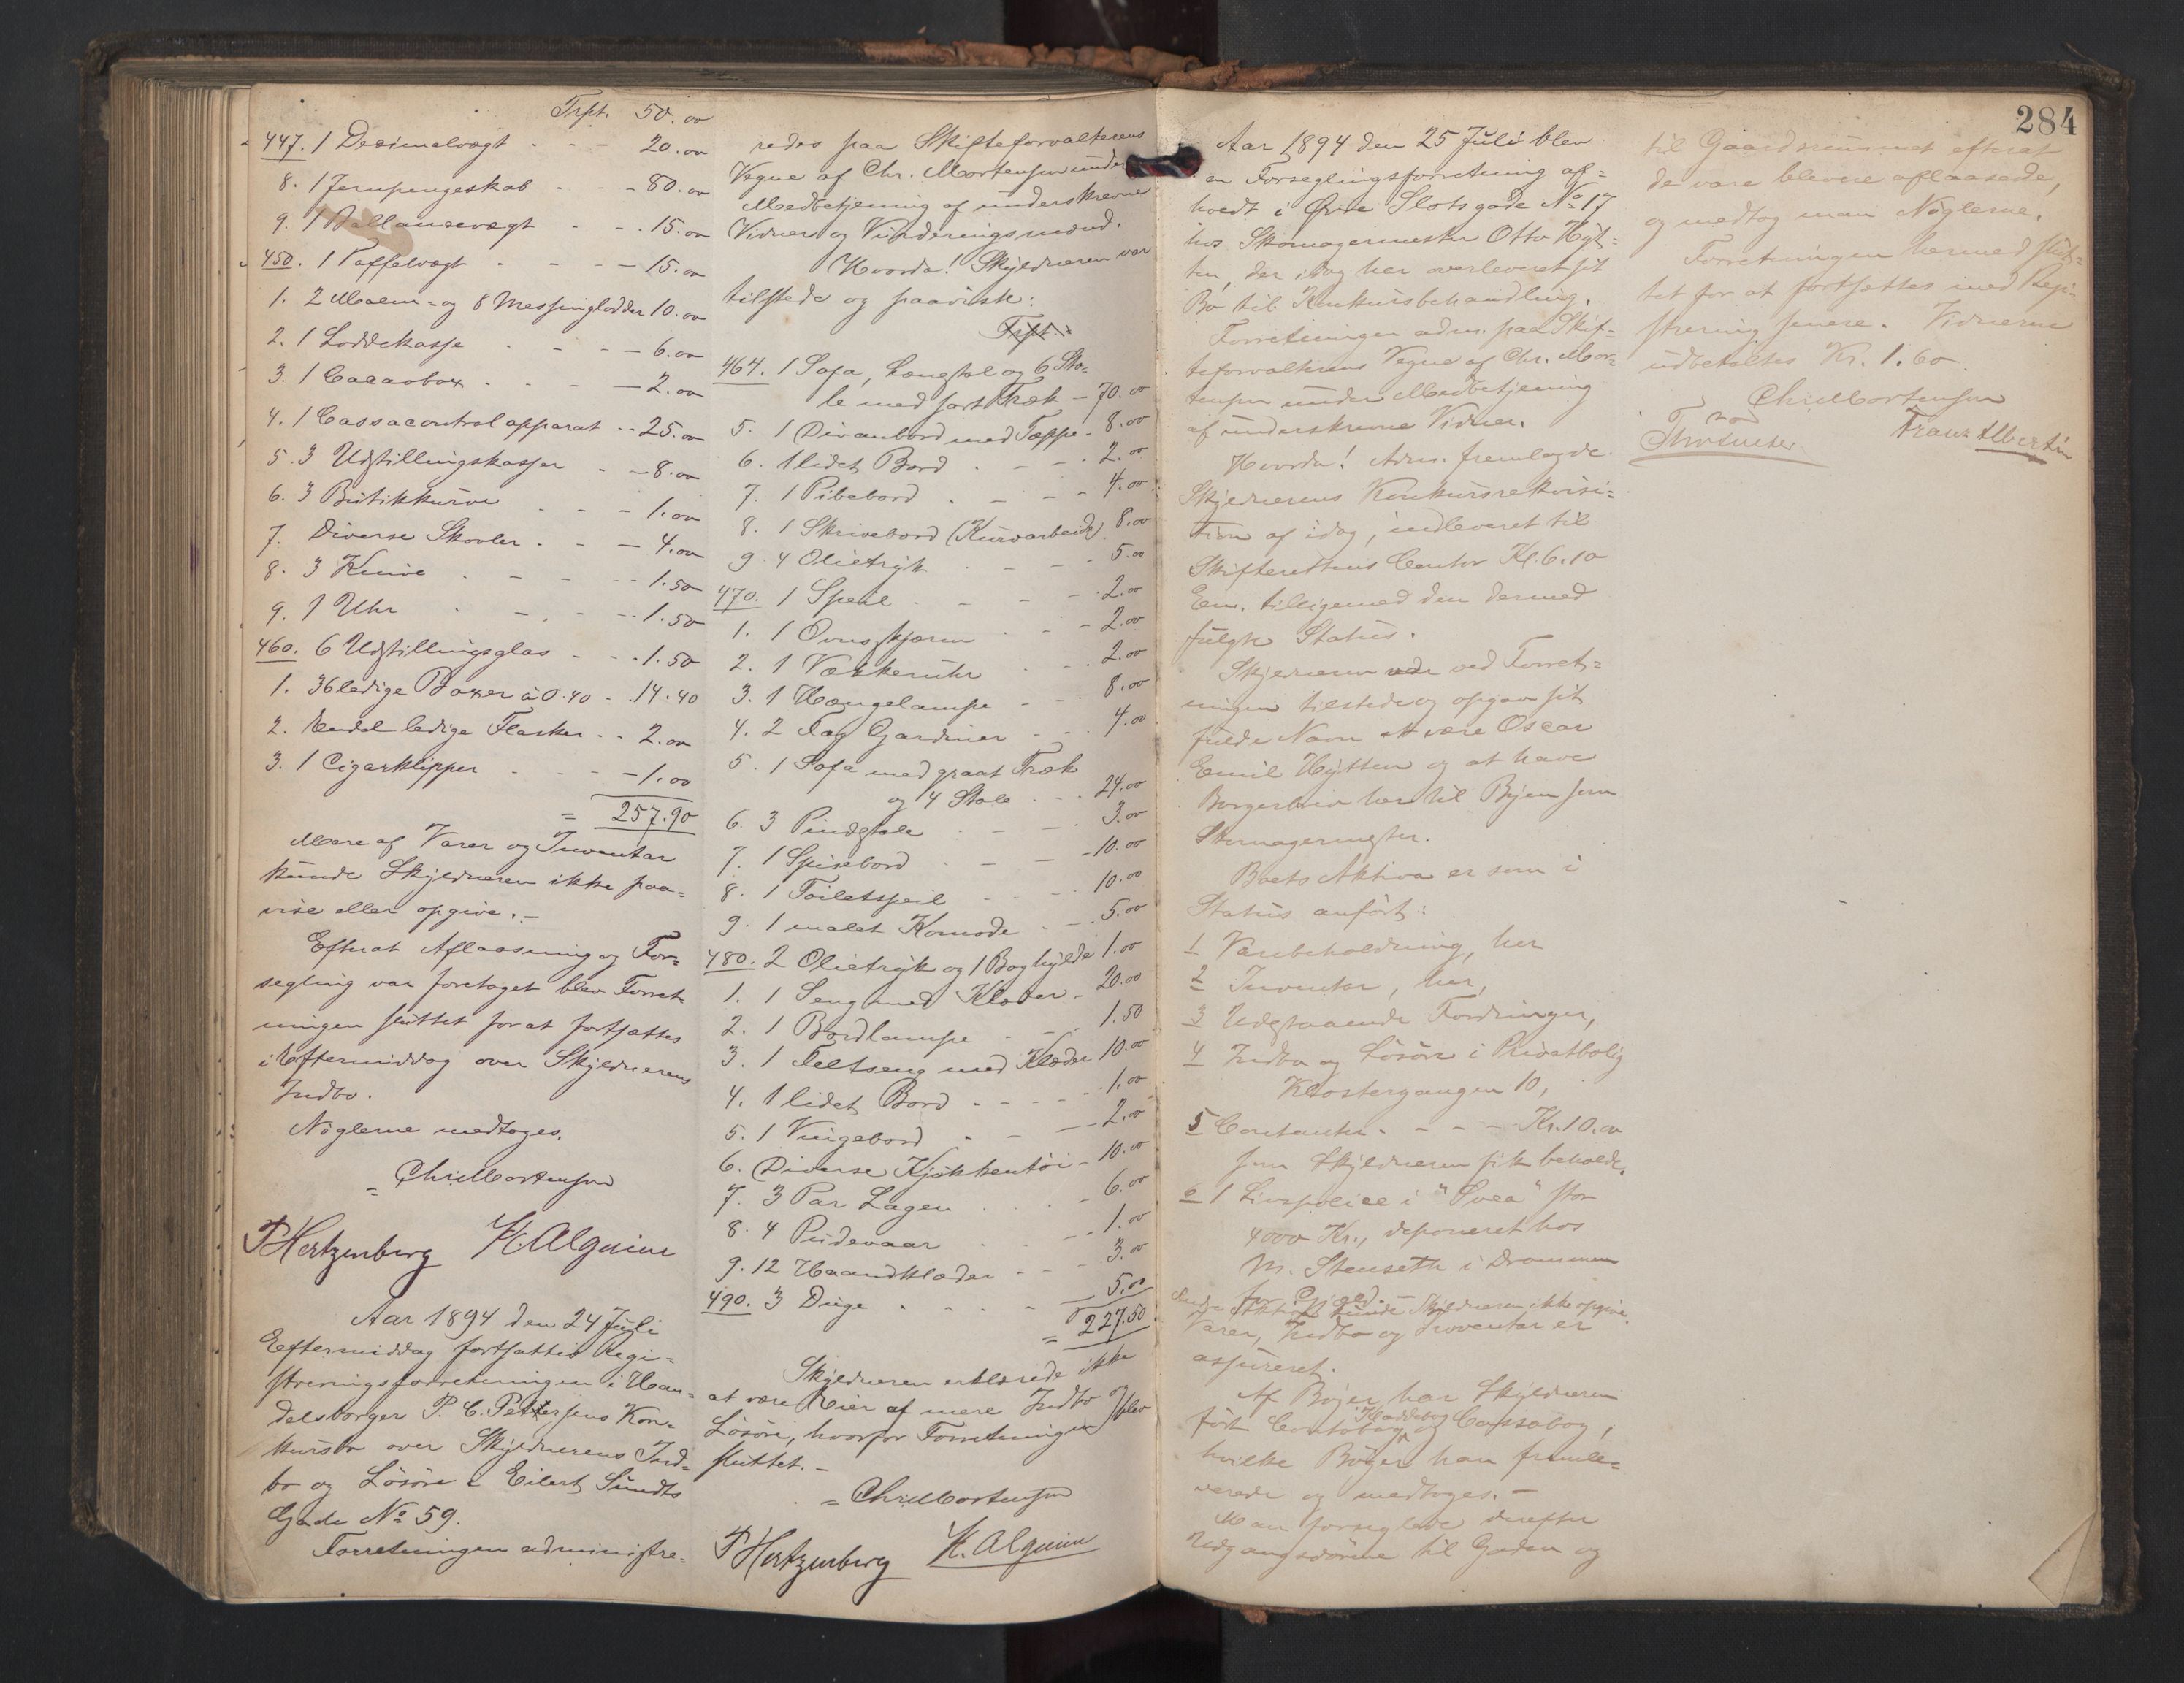 Trpt. 50.00
447. 1 Desimalvægt - - - 20.00
8. 1 Jernpengeskab - - - 80.00
9. 1 Ballancevægt - - - 15.00
450. 1 Taffelvægt - - - - 15.00
1. 2 Malm- og 8 Messinglodder 10.00
2. 1 Loddekasse - - - - 6.00
3. 1 Cacaobox - - - - 2.00
4. 1 Cassacontrolapparat - - 25.00
5. 3 Udstillingskasser - - 8.00
6. 3 Butikkurve - - - 1.00
7. Diverse Skovler - - - 4.00
8. 3 Knive - - - - 1.50
9. 1 Uhr - - - - 1.50
460. 6 Udstillingsglas - - - 1.50
1. 36 ledige Boxer à 0.40 - 14.40
2. Endel ledige Flasker - - 2.00
3. 1 Cigarklipper - - - - 1.00
= 257.90
Mere af Varer og Inventar
kunde Skyldneren ikke paa-
vise eller opgive. -
Efterat Aflaasning og For-
segling var foretaget blev Forret-
ningen sluttet for at fortsættes
i Eftermiddag over Skyldnerens
Indbo.
Nøglerne medtoges.
= Chr. Mortensen
P Hertzenberg H. Alguim
Aar 1894 den 24 Juli
Eftermiddag fortsattes Regi-
streringsforretningen i Han-
delsborger P. C. Pettersens Kon-
kursbo over Skyldnerens Ind-
bo og Løsøre i Eilert Sundts
Gade No 59.
Forretningen administre-
redes paa Skifteforvalterens
Vegne af Chr. Mortensen under
Medbetjening af underskrevne
Vidner og Vurderingsmænd.
Hvorda! Skyldneren var
tilstede og paaviste:
Trpt.
464. 1 Sofa, Lænestol og 6 Sto-
le med sort Træk - 70.00
5. 1 Divanbord med Tæppe - 8.00
6. 1 lidet Bord - - - 2.00
7. 1 Pibebord - - - - 4.00
8. 1 Skrivebord (Kurvarbeide) 8.00
9. 4 Olietryk - - - - 5.00
470. 1 Speil - - - - 2.00
1. 1 Ovnsskjærm - - - 2.00
2. 1 Vækkeruhr - - - 2.00
3. 1 Hængelampe - - - 8.00
4. 2 Fag Gardiner - - - 4.00
5. 1 Sofa med graat Træk
og 4 Stole - - - 24.00
6. 3 Pindstole - - - - 3.00
7. 1 Spisebord - - - - 10.00
8. 1 Toiletspeil - - - 10.00
9. 1 malet Komode - - - 5.00
480. 2 Olietryk og 1 Boghylde 1.00
1. 1 Seng med Klæder - 20.00
2. 1 Bordlampe - - - 1.50
3. 1 Feltseng med Klæder 10.00
4. 1 lidet Bord - - - - 1.00
5. 1 Vingebord - - - - 2.00
6. Diverse Kjøkkentøi - 10.00
7. 3 Par Lagen - - - - 6.00
8. 4 Pudevaar - - - - 1.00
9. 12 Haandklæder - - - 3.00
490. 3 Duge - - - - 5.00
= 227.50
Skyldneren erklærede ikke
at være Eier af mere Indbo og
Løsøre, hvorfor Forretningen blev
sluttet. -
= Chr. Mortensen
P Hertzenberg H. Alguim
284
Aar 1894 den 25 Juli blev
en Forseglingsforretning af-
holdt i Øvre Slotsgade No 17
hos Skomagermester Otto Hyt-
ten, der idag har overleveret sit
Bo til Konkursbehandling.
Forretningen adm. paa Skif-
teforvalterens Vegne af Chr. Mor-
tensen under Medbetjening
af underskrevne Vidner.
Hvorda! Adm. fremlagde
Skyldnerens Konkursrekvisi-
tion af idag, indleveret til
Skifterettens Contor Kl. 6.10
Em. tilligemed den dermed
fulgte Status.
Skyldneren var ved Forret-
ningen tilstede og opgav sit
fulde Navn at være Oscar
Emil Hytten og at have
Borgerbrev her til Byen som
Skomagermester.
Boets Aktiva er som i
Status anført:
1 Varebeholdning, her
2 Inventar, her,
3 Udestaaende Fordringer,
4 Indbo og Løsøre i Privatbolig
Klostergangen 10,
5 Contanter - - - - Kr. 10.00
som Skyldneren fik beholde.
6 1 Livspolice i "Svea" stor
4000 Kr., deponeret hos
M. Stenseth i Drammen
for Gjæld. -
Andre Aktiva kunde Skyldneren ikke opgive.
Varer, Indbo og Inventar er
assureret.
Af Bøger har Skyldneren
ført Contobog, Kladdebog og Cassabog,
hvilke Bøger han fremle-
verede og medtoges. -
Man forseglede derefter
Udgangsdørene til Gaden og
til Gaardsrummet efterat
de vare blevne aflaasede,
og medtog man Nøglerne.
Forretningen hermed slut-
tet for at fortsættes med Regi-
strering senere. Vidnerne
udbetaltes Kr. 1.60.
Chr. Mortensen
Franz Albertin